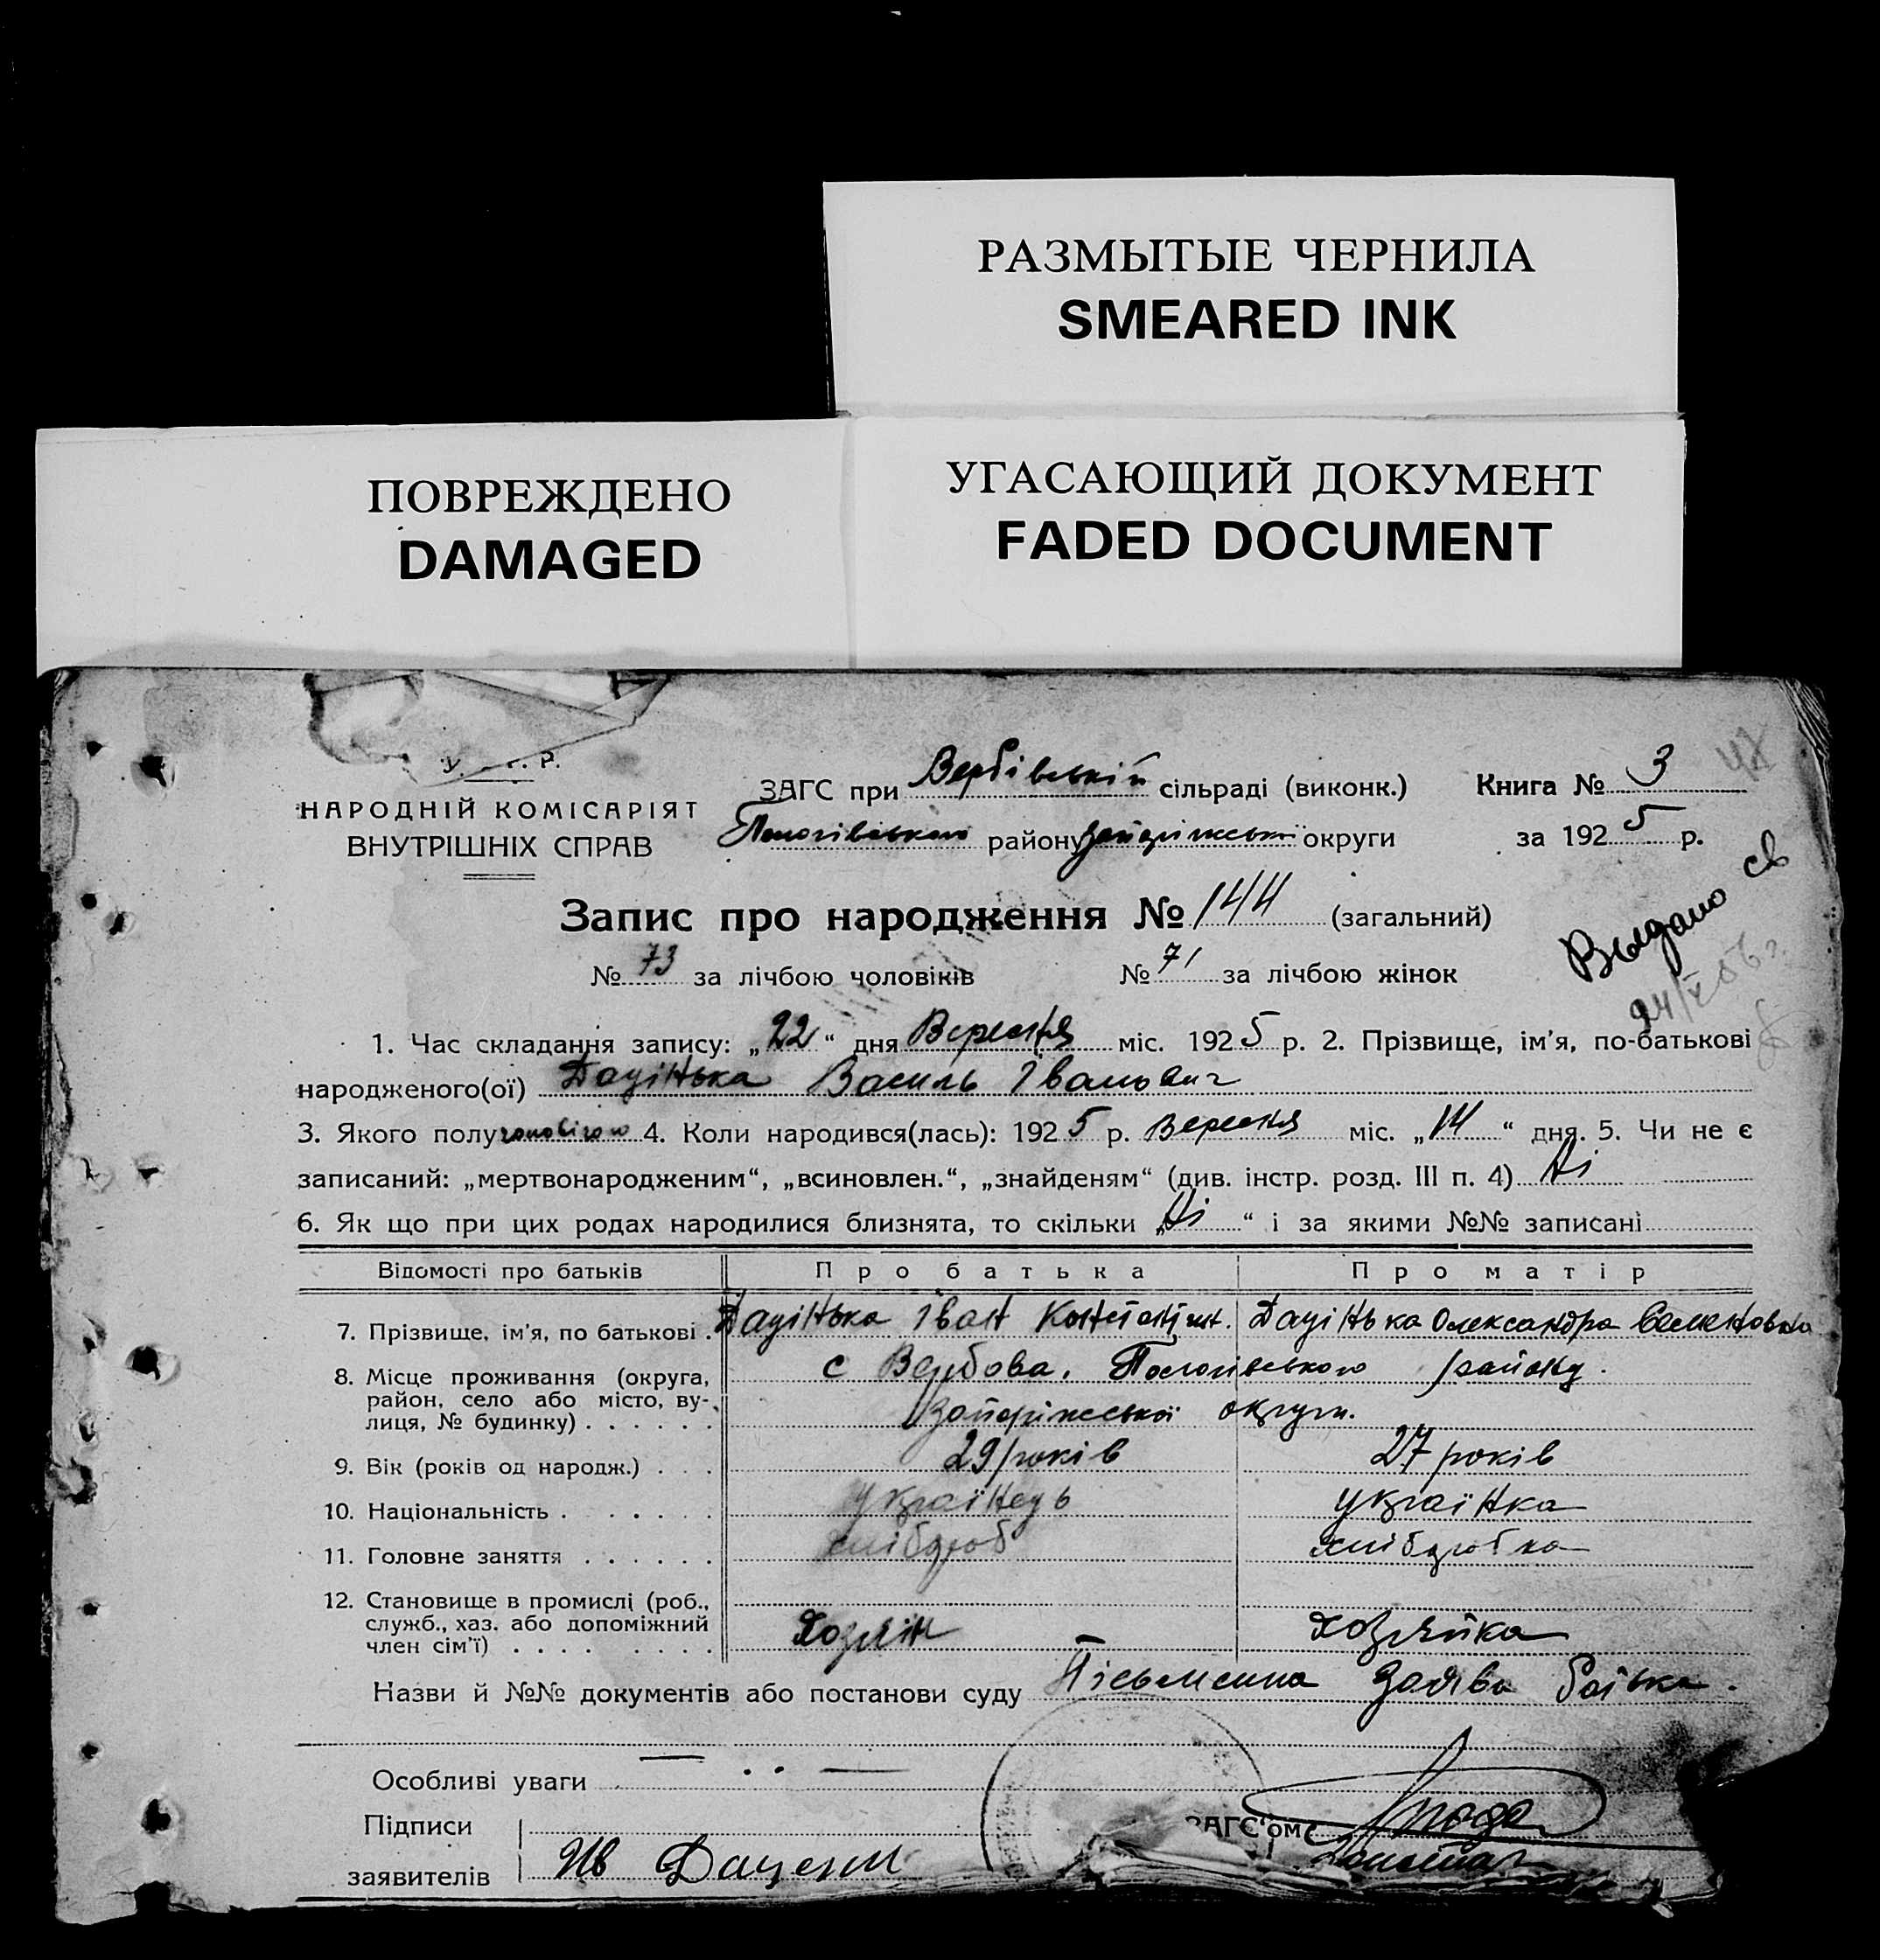 РАЗМЫТЫЕ ЧЕРНИЛА
SMEARED INK
ПОВРЕЖДЕНО
DAMAGED
УГАСАЮЩИЙ ДОКУМЕНТ
FADED DOCUMENT
НАРОДНІЙ КОМІСАРІЯТ
ВНУТРІШНІХ СПРАВ
ЗАГС при Вербівській сільраді (виконк.)
Пологівського району Запоріжської округи
Книга № 3
за 1925 р.
Запис про народження № 144 (загальний)
№ 73 за лічбою чоловіків № 71 за лічбою жінок
Выдано св
1. Час складання запису: „22“ дня Вересня міс. 1925 р. 2. Прізвище, ім'я, по-батькові
народженого(ої) Дацінька Василь Іванович
3. Якого полу чоловічого 4. Коли народився(лась): 1925 р. Вересня міс. „14“ дня. 5. Чи не є
записаний: „мертвонародженим“, „всиновлен.“, „знайденям“ (див. інстр. розд. III п. 4) Ні
6. Як що при цих родах народилися близнята, то скільки „Ні“ і за якими №№ записані
Відомості про батьків Про батька Про матір
7. Прізвище, ім'я, по батькові . Дацінька Іван Дацінька Олександра Семеновна
8. Місце проживання (округа, район, село або місто, вулиця, № будинку) . . . . . . с Вербова. Пологівського району.
Запоріжської округи.
9. Вік (років од народж.) . . . 29 років 27 років
10. Національність . . . . . . . українець українка
11. Головне заняття . . . . . . хлібороб хліборобка
12. Становище в промислі (роб., служб., хаз. або допоміжний член сім'ї) . . . . . . . . Хозяін хозяйка
Назви й №№ документів або постанови суду Пісьменна заява батька.
Особливі уваги
Підписи
заявителів Ив Даценко
ЗАГС'ом